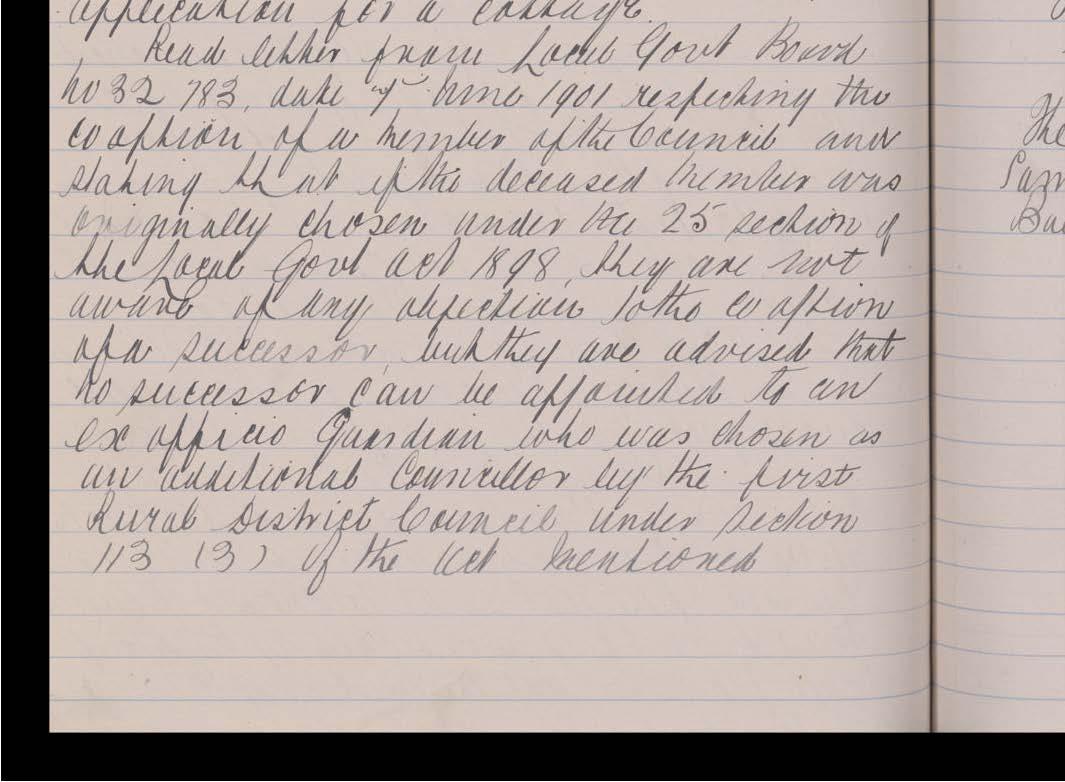 application for a cottage.
Read letter from Local Govt Board
No 32 783, date 7th June 1901 respecting the
co option of a member of the Council and
stating that if the deceased member was
originally chosen under the 25 section of
the Local Govt act 1898, they are not
aware of any objection to the co option
of a successor, but they are advised that
no successor can be appointed to an
ex officio Guardian who was chosen as
an additional Councillor by the first
Rural District Council under section
113 (3) of the act mentioned
The